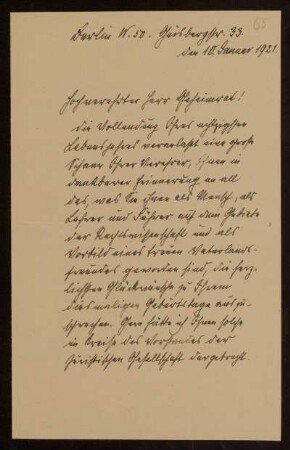 65
Berlin W. 50. Geisbergstr. 33.
den 10. Januar 1921.
Hochverehrter Herr Geheimrat!
Die Vollendung Ihres achtzigsten
Lebensjahres veranlaßt eine große
Schaar Ihrer Verehrer, Ihnen in
dankbarer Erinnerung an all
das, was Sie ihnen als Mensch, als
Lehrer und Führer auf dem Gebiete
der Rechtswissenschaft und als
Vorbild eines treuen Vaterlands-
freundes geworden sind, die herz-
lichsten Glückwünsche zu Ihrem
diesmaligen Geburtstage auszu-
sprechen. Gern hätte ich Ihnen solche
im Kreise des Vorstandes der
Juristischen Gesellschaft dargebracht.